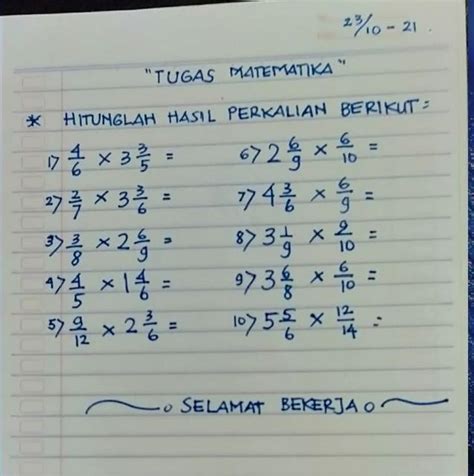 23/10 - 21.
"TUGAS MATEMATIKA"
* HITUNGLAH HASIL PERKALIAN BERIKUT =
1) 4/6 × 3 3/5 =
2) 2/7 × 3 3/6 =
3) 3/8 × 2 6/9 =
4) 4/5 × 1 4/6 =
5) 9/12 × 2 3/6 =
6) 2 6/9 × 6/10 =
7) 4 3/6 × 6/9 =
8) 3 1/9 × 2/10 =
9) 3 6/8 × 6/10 =
10) 5 5/6 × 12/14 =
SELAMAT BEKERJA